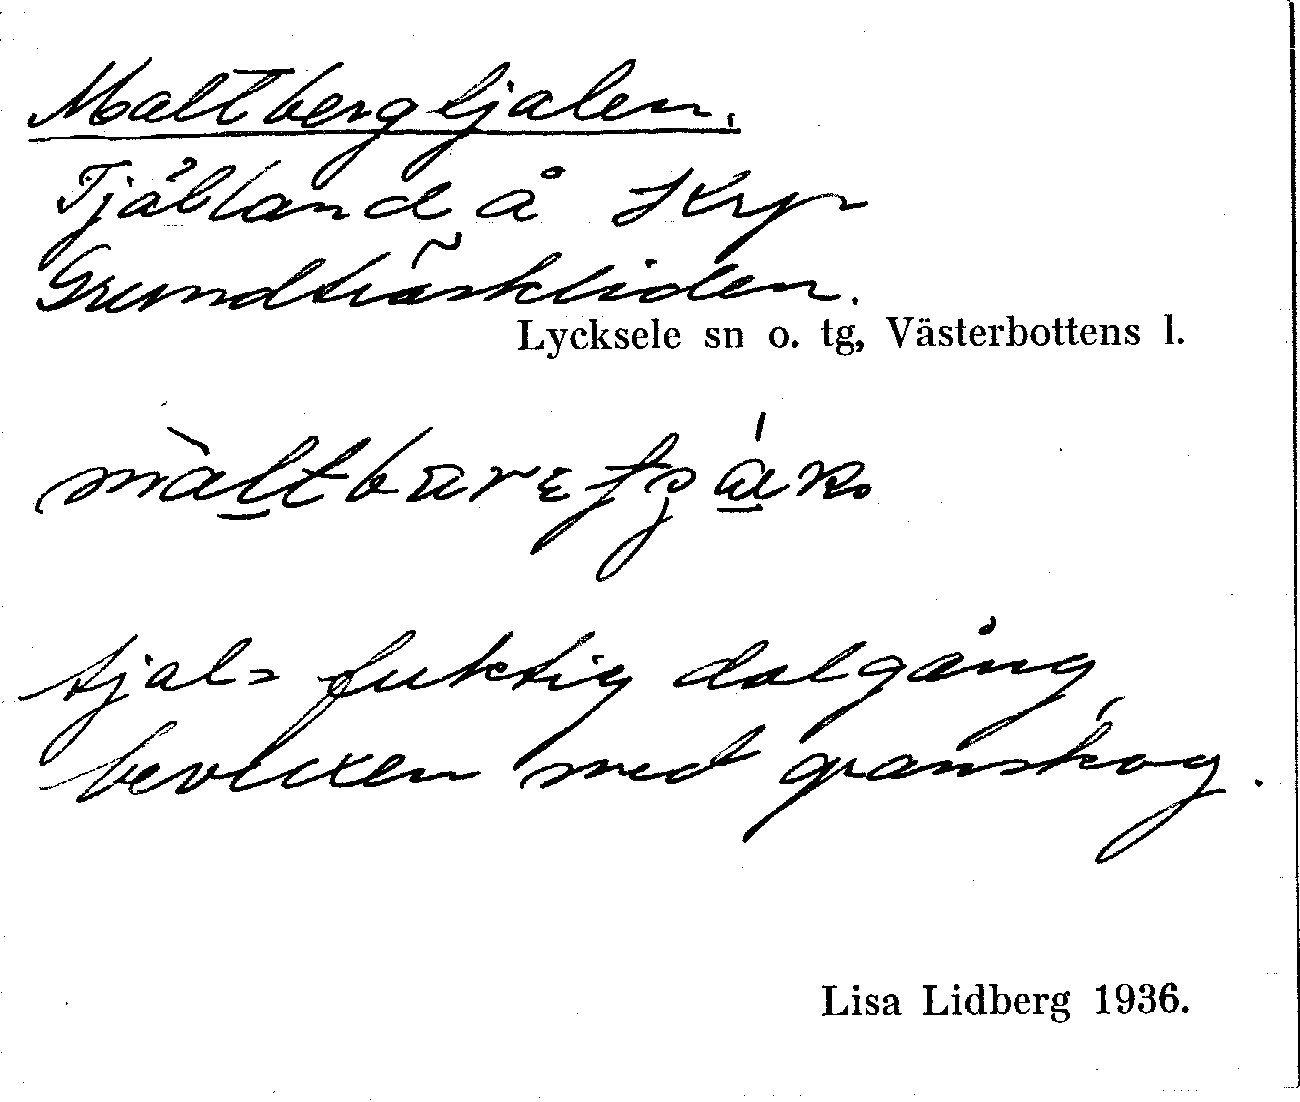 Maltbergtjalen.
Tjålland å Kryp
Grundträskliden.
Lycksele sn o. tg, Västerbottens l.
tjal = fuktig dalgång
bevuxen med granskog.
Lisa Lidberg 1936.